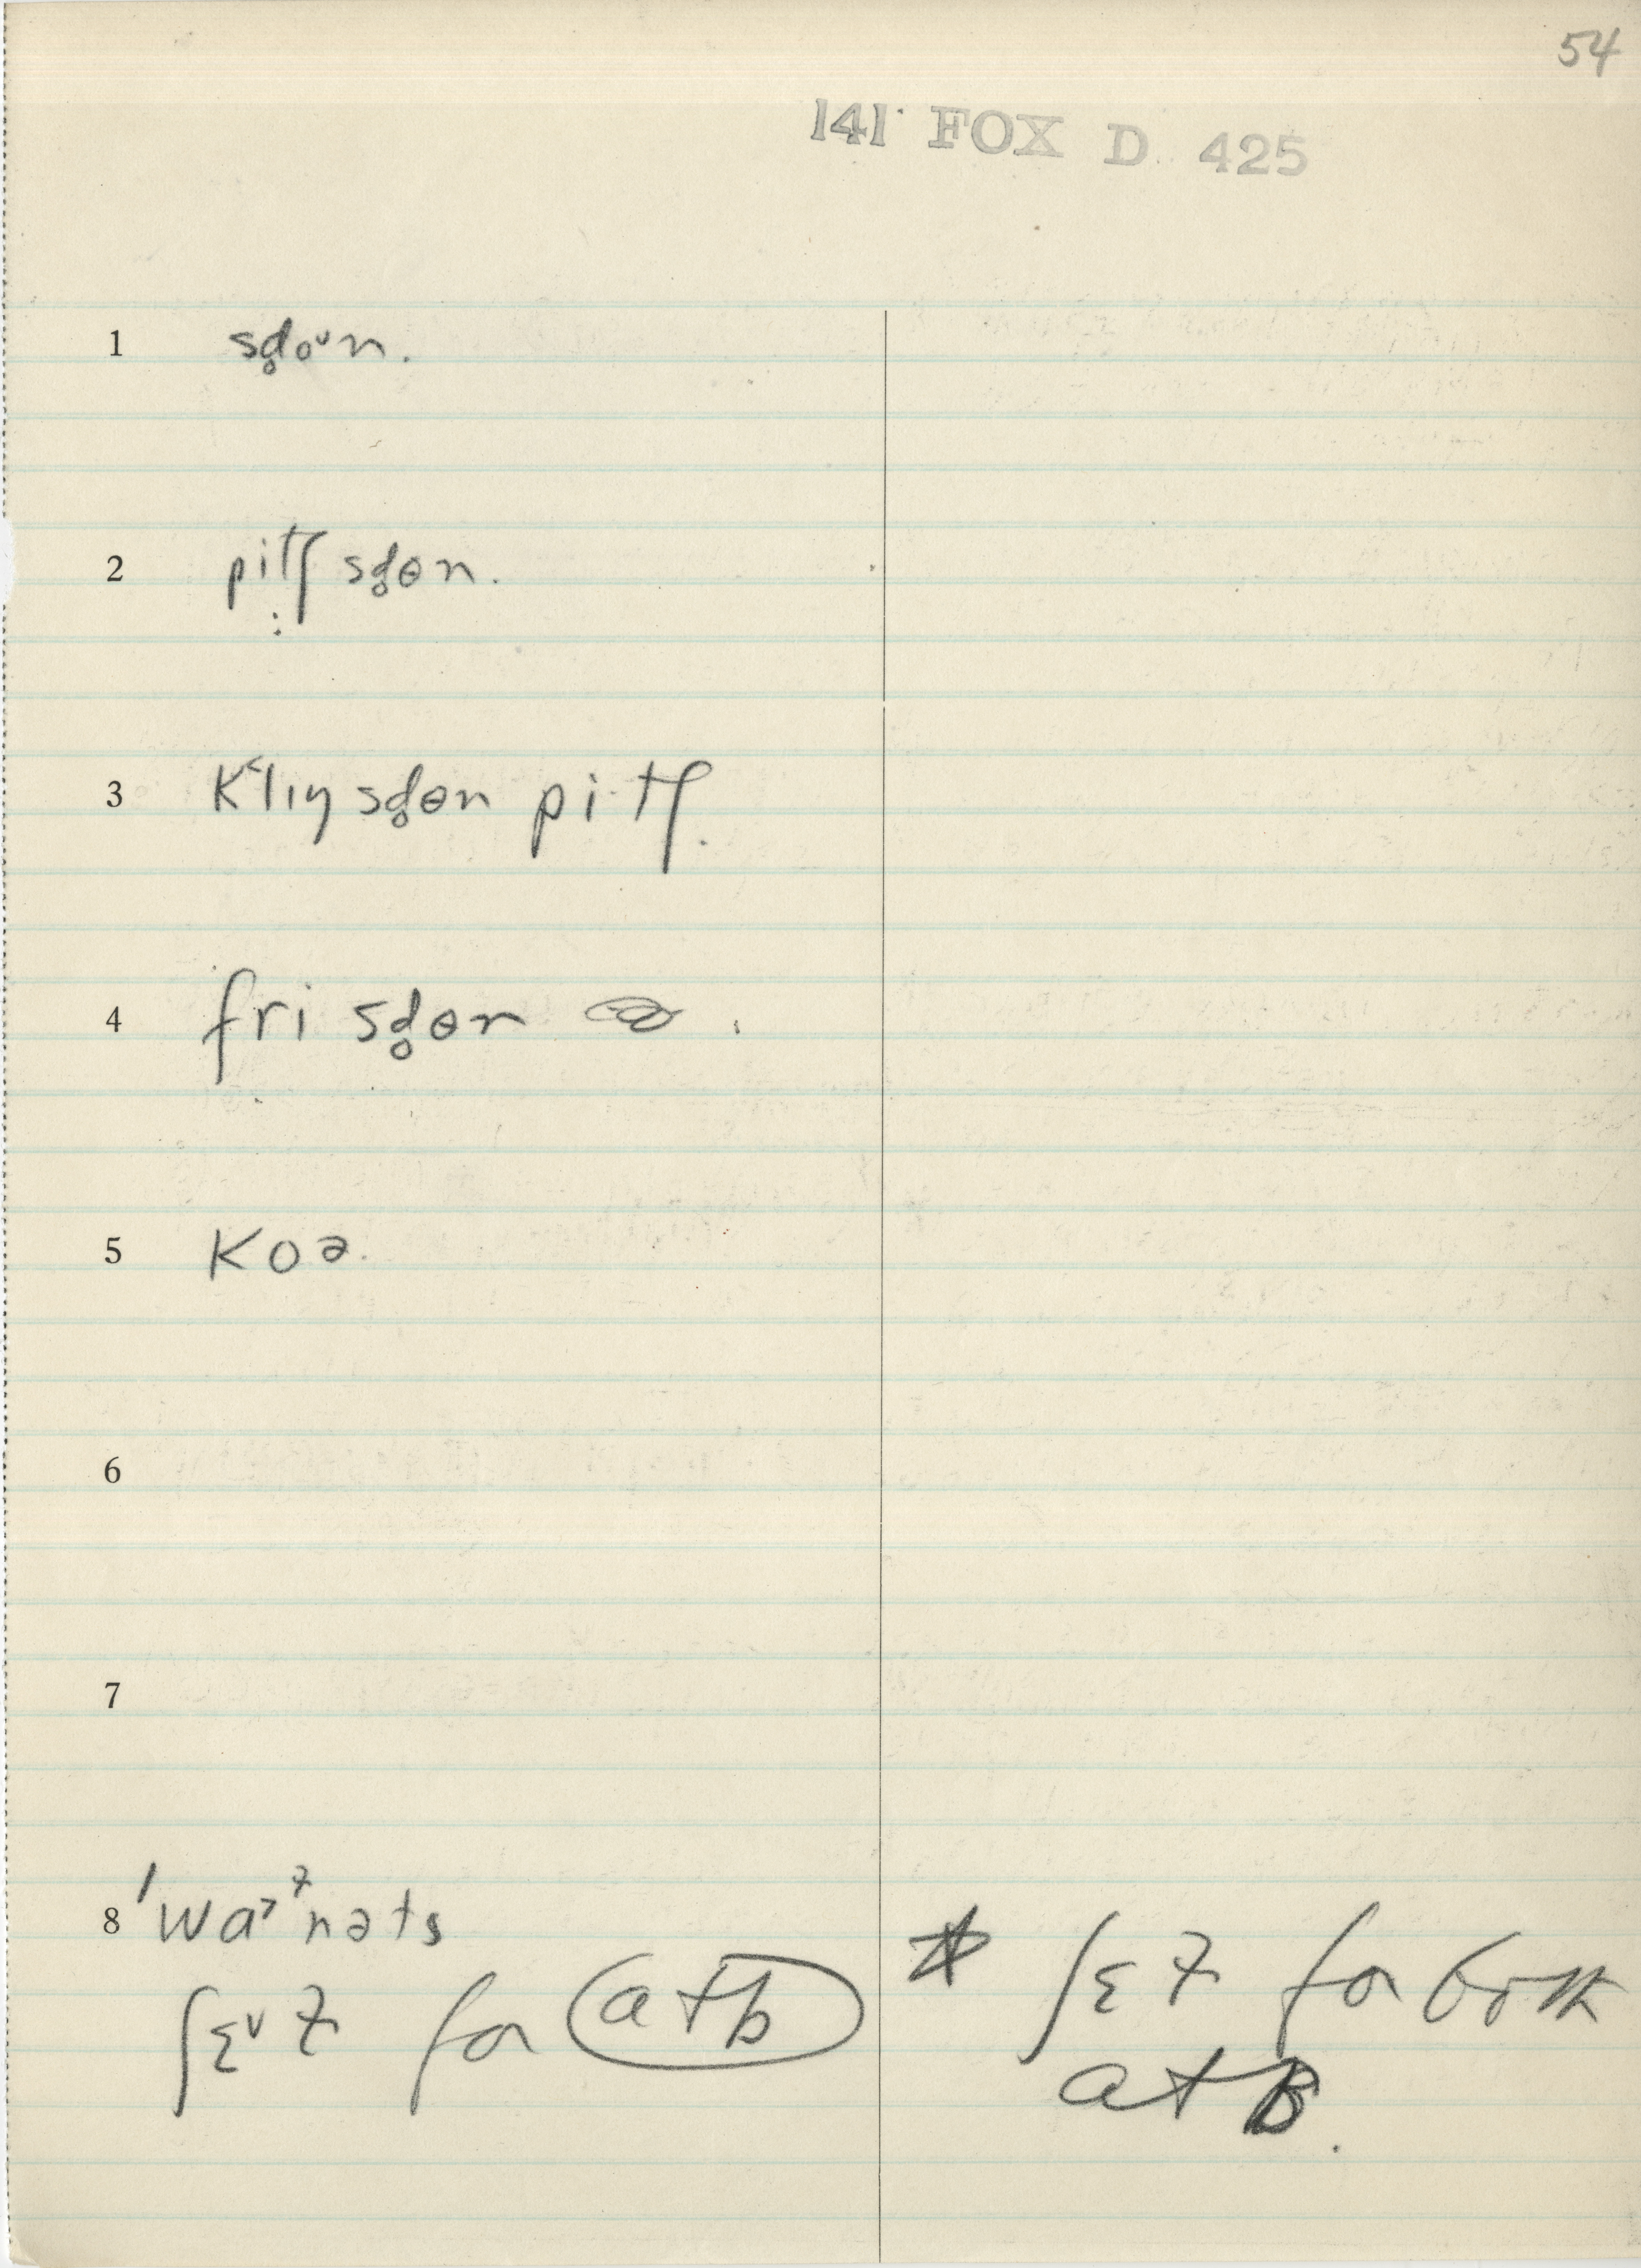 54
141 FOX D 425
1 sd̥oᵛn.
2 pi·tʃ sd̥ɵn.
3 K˂lɪŋ sd̥ɵn pi·tʃ.
4 fri sd̥ɵn
5 Koə.
6
7
8 'wa˃ᶻnəts
ʃɛᵛɫ for a + b
* ʃɛɫ for both
a + B.